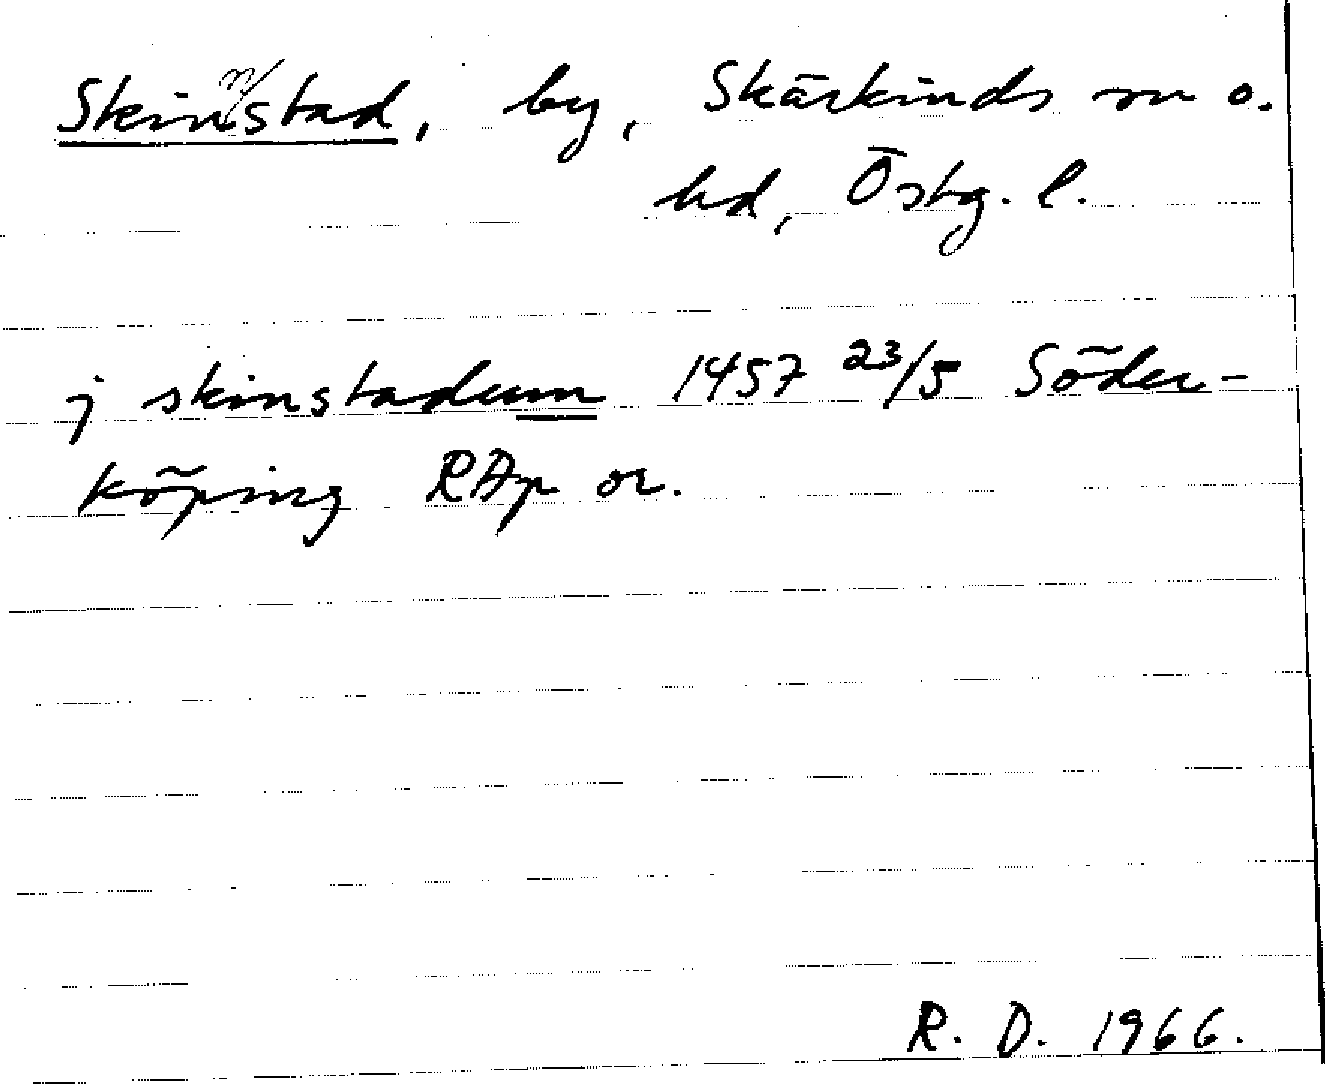 Skinnstad, by, Skärkinds sn o.
hd, Östg. l.
j skinstadum 1457 23/5 Söder-
köping RAp or.
R. D. 1966.